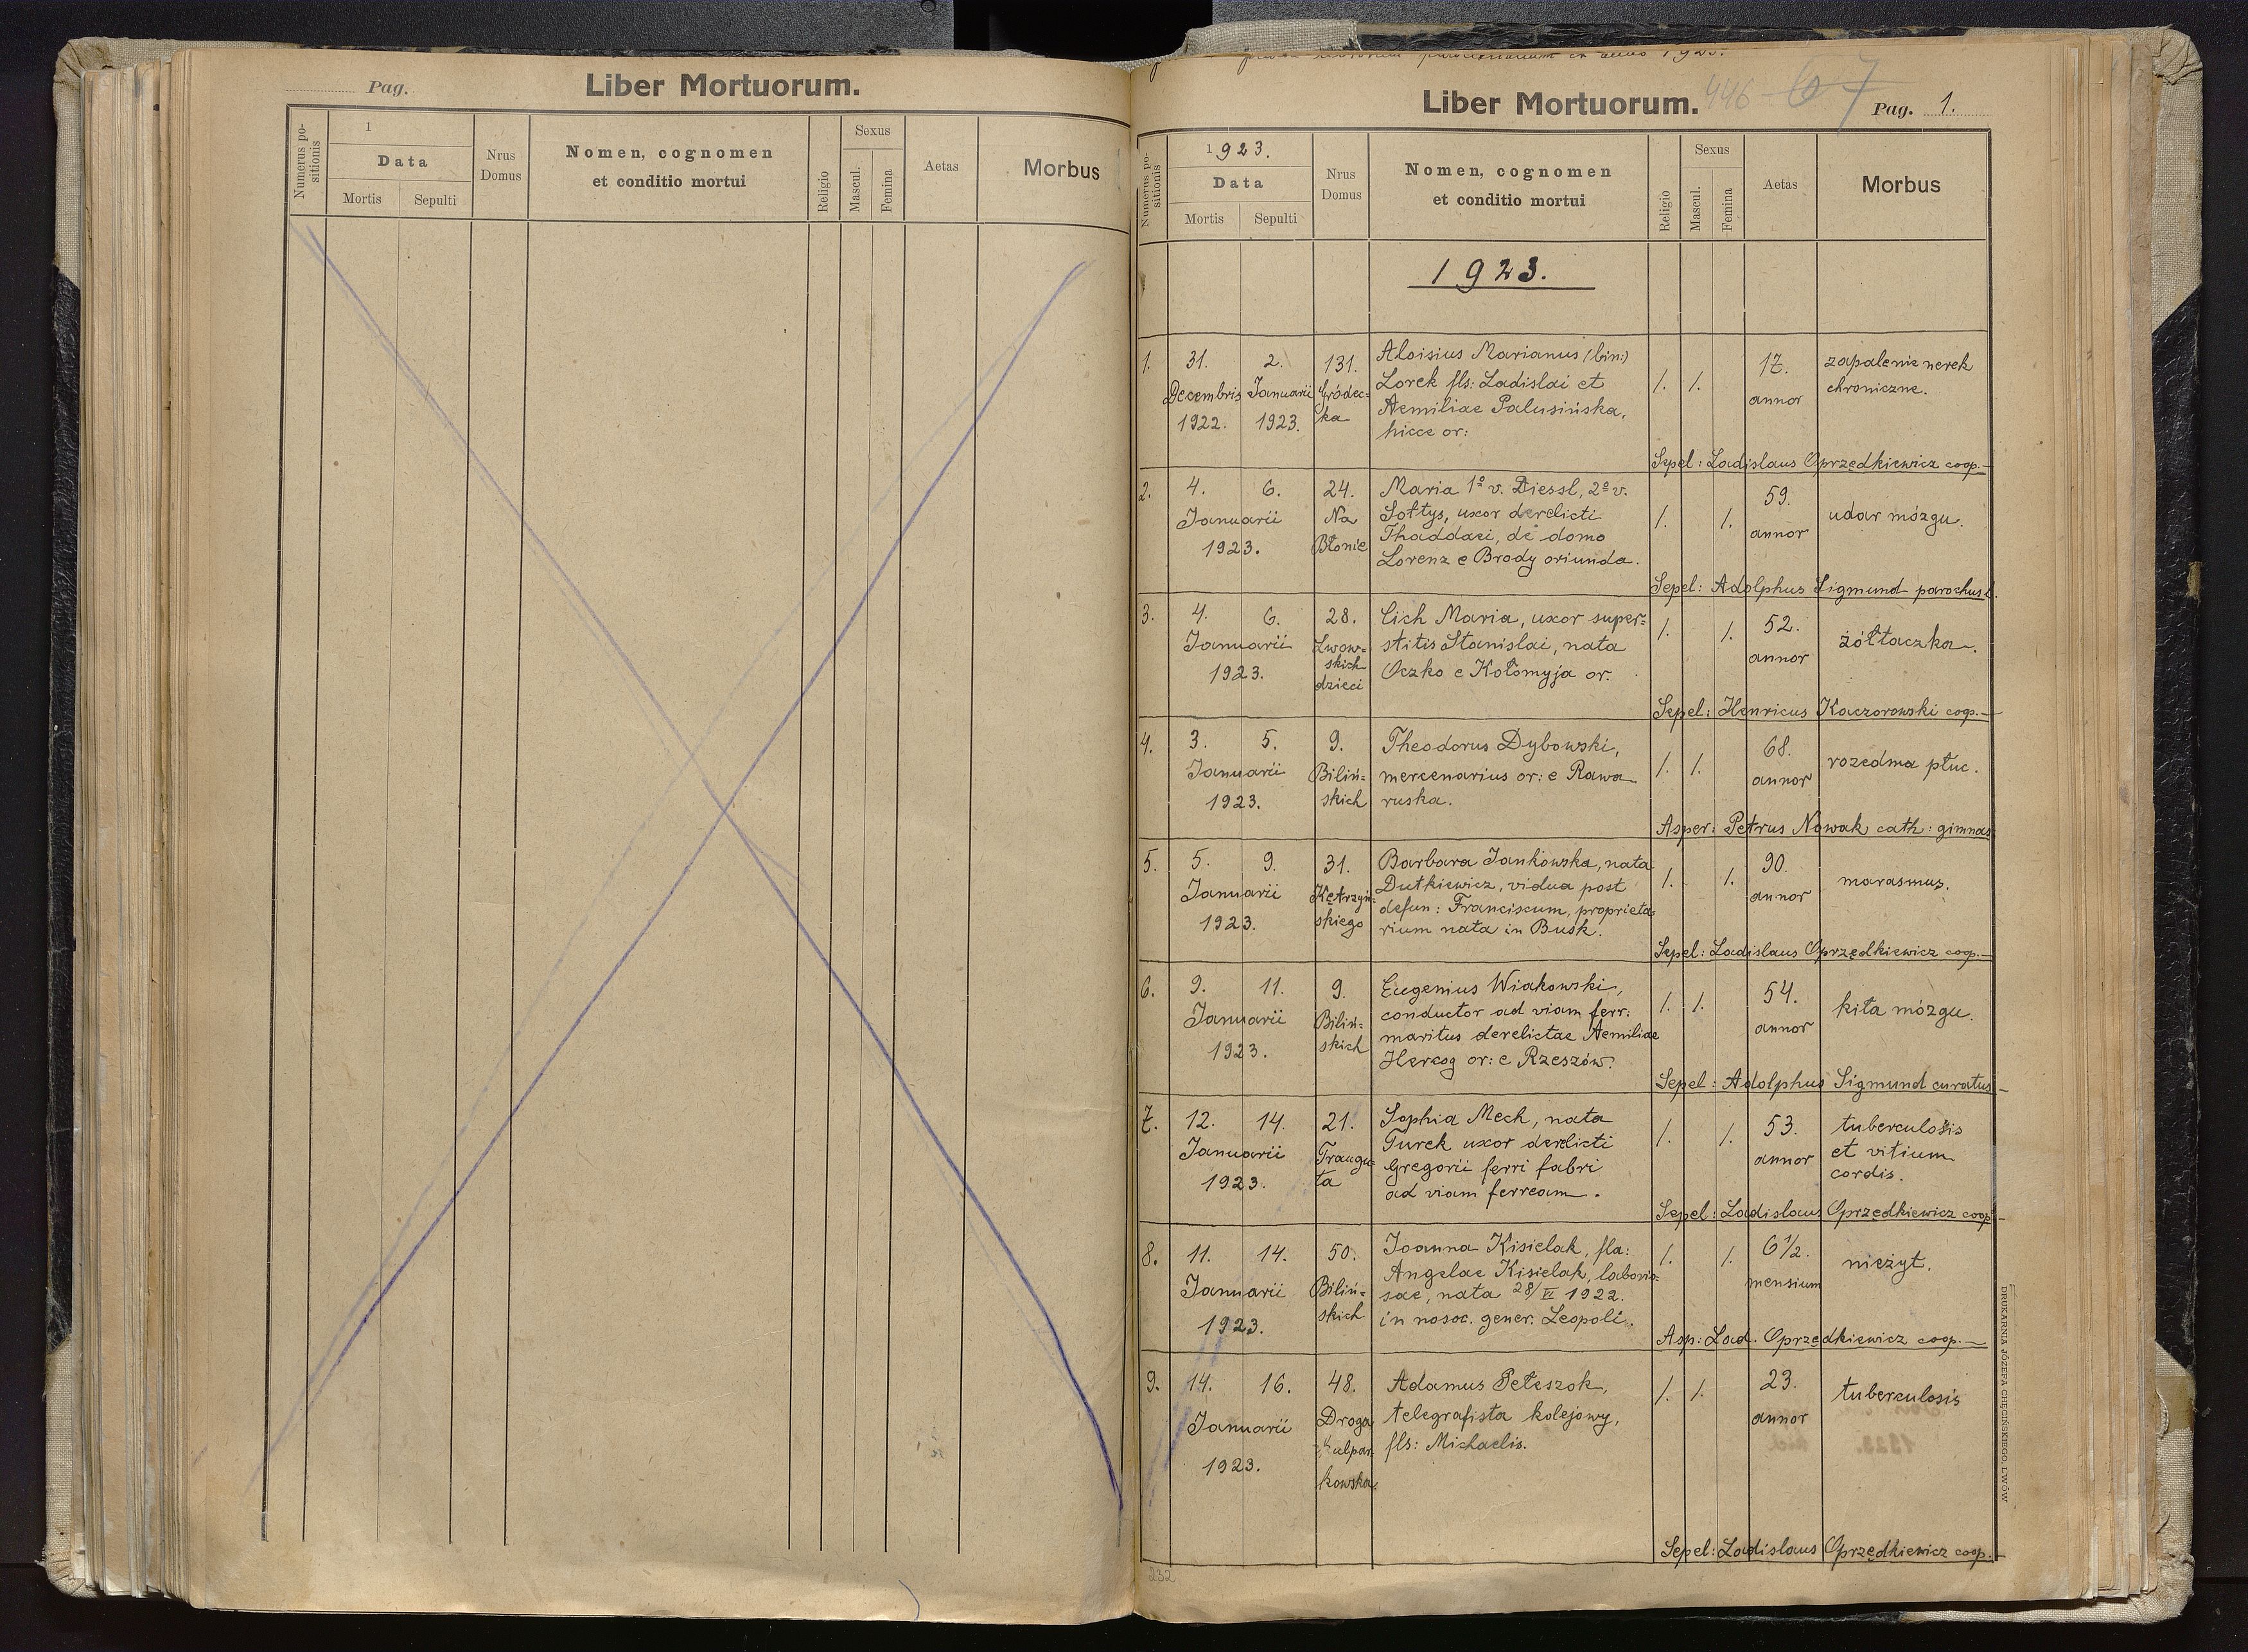 Pag.
Liber Mortuorum.
Numerus po-
sitionis
1
Data
Mortis
Sepulti
Nrus
Domus
Nomen, cognomen
et conditio mortui
Religio
Sexus
Mascul.
Femina
Aetas
Morbus
in anno 1923.
Liber Mortuorum.
446 67
Pag. 1.
Numerus po-
sitionis
1923.
Data
Mortis
Sepulti
Nrus
Domus
Nomen, cognomen
et conditio mortui
Religio
Sexus
Mascul.
Femina
Aetas
Morbus
1923.
1.
31.
Decembris
1922.
2.
Januarii
1923.
131.
Gródec-
ka
Aloisius Marianus (bin:)
Lorek fls: Ladislai et
Aemiliae Palusińska,
hicce or:
1. 1.
17.
annor
zapalenie nerek
chroniczne.
Sepel: Ladislaus Oprzędkiewicz coop.
2.
4. 6.
Januarii
1923.
24.
Na
Błonie
Maria 1º v. Diessl, 2º v.
Sołtys, uxor derelicti
Thaddaei, de domo
Lorenz e Brody oriunda.
1. 1.
59.
annor
udar mózgu.
Sepel: Adolphus Sigmund parochus l.
3.
4. 6.
Januarii
1923.
28.
Lwow-
skich
dzieci
Cich Maria, uxor super-
stitis Stanislai, nata
Oczko e Kołomyja or.
1. 1.
52.
annor
żółtaczka.
Sepel: Henricus Kaczorowski coop.
4.
3. 5.
Januarii
1923.
9.
Biliń-
skich
Theodorus Dybowski,
mercenarius or: e Rawa
ruska.
1. 1.
68.
annor
rozedma płuc.
Asper: Petrus Nowak cath: gimnas
5.
5. 9.
Januarii
1923.
31.
Kętrzyń-
skiego
Barbara Jankowska, nata
Dutkiewicz, vidua post
defun: Franciscum, proprieta-
rium nata in Busk.
1. 1.
90.
annor
marasmus.
Sepel: Ladislaus Oprzędkiewicz coop.
6.
9. 11.
Januarii
1923.
9.
Biliń-
skich
Eugenius Wiakowski,
conductor ad viam ferr:
maritus derelictae Aemiliae
Hercog or: e Rzeszów.
1. 1.
54.
annor
kiła mózgu.
Sepel: Adolphus Sigmund curatus
7.
12. 14.
Januarii
1923.
21.
Traugu-
ta
Sophia Mech, nata
Turek uxor derelicti
Gregorii ferri fabri
ad viam ferream.
1. 1.
53.
annor
tuberculosis
et vitium
cordis.
Sepel: Ladislaus Oprzędkiewicz coop
8.
11. 14.
Januarii
1923.
50.
Biliń-
skich
Joanna Kisielak, fla:
Angelae Kisielak, laborio-
sae, nata 28/VI 1922.
in nosoc. gener. Leopoli.
1. 1.
6 1/2.
mensium
nieżyt.
Asp: Lad. Oprzędkiewicz coop.
9.
14. 16.
Januarii
1923.
48.
Droga
Kulpar-
kowska
Adamus Peteszok,
telegrafista kolejowy,
fls: Michaelis.
1. 1.
23.
annor
tuberculosis
Sepel: Ladislaus Oprzędkiewicz coop.
232
DRUKARNIA JÓZEFA CHĘCIŃSKIEGO, LWÓW